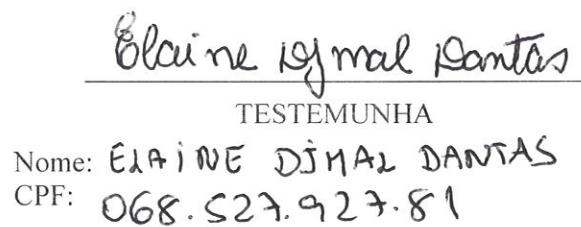 Elaine Djmal Dantas
TESTEMUNHA
Nome: ELAINE DJMAL DANTAS
CPF: 068.527.927.81